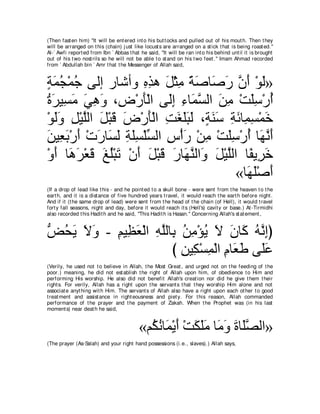 (Then fasten him) "It will be entered into his buttocks and pulled out of his mouth. Then they
will be arranged on this (chain) just like locusts are arranged on a stick that is being roasted.''
Al-`Awfi reported from Ibn `Abbas that he said, "It will be ran into his behind until it is brought
out of his two nostrils so he will not be able to stand on his two feet.'' Imam Ahmad recorded
from `Abdullah bin `Amr that the Messenger of Allah said,
«لَوْ أَنَّ رَصَاصَةً مِثْلَ هذِهِ وَأَشَارَ إِلَى جُمْجُمَةٍ
أُرْسِلَتْ مِنَ السَّمَاءِ إِلَى الْأَرْضِ، وَهِيَ مَسِيرَةُ
خَمْسِمِائَةِ سَنَةٍ، لَبَلَغَتِ الْأَرْضَ قَبْلَ اللَّيْلِ وَلَوْ
أَنَّهَا أُرْسِلَتْ مِنْ رَأْسِ السِّلْسِلَةِ لَسَارَتْ أَرْبَعِينَ
خَرِيفًا اللَّيْلَ وَالنَّهَارَ قَبْلَ أَنْ تَبْلُغَ قَعْرَهَا أَوْ
أَصْلَهَا»
(If a drop of lead like this - and he pointed to a skull bone - were sent from the heaven to the
earth, and it is a distance of five hundred years travel, it would reach the earth before night.
And if it (the same drop of lead) were sent from the head of the chain (of Hell), it would travel
forty fall seasons, night and day, before it would reach its (Hell's) cavity or base.) At-Tirmidhi
also recorded this Hadith and he said, "This Hadith is Hasan.'' Concerning Allah's statement,
(إِنَّهُ كَانَ لَا يُؤْمِنُ بِاللَّهِ الْعَظِيمِ - وَلَا يَحُضُّ
عَلَى طَعَامِ الْمِسْكِينِ )
(Verily, he used not to believe in Allah, the Most Great, and urged not on the feeding of the
poor.) meaning, he did not establish the right of Allah upon him, of obedience to Him and
performing His worship. He also did not benefit Allah's creation nor did he give them their
rights. For verily, Allah has a right upon the servants that they worship Him alone and not
associate anything with Him. The servants of Allah also have a right upon each other to good
treatment and assistance in righteousness and piety. For this reason, Allah commanded
performance of the prayer and the payment of Zakah. When the Prophet was (in his last
moments) near death he said,
«الصَّلَاةَ وَمَا مَلَكَتْ أَيْمَانُكُم»
(The prayer (As-Salah) and your right hand possessions (i.e., slaves).) Allah says,